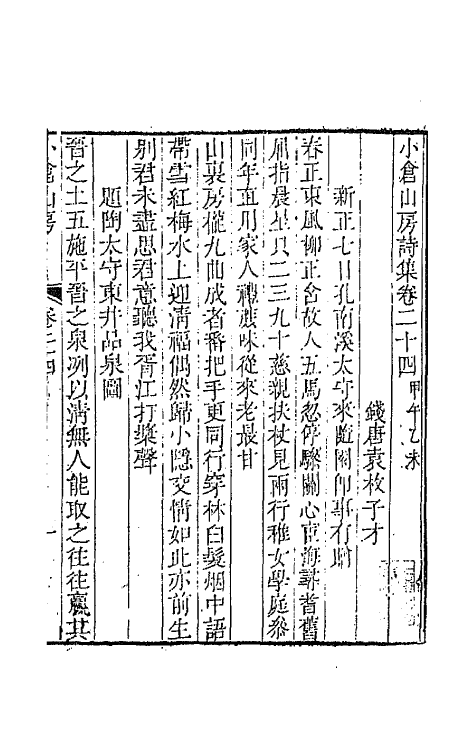 小倉山房詩集卷二十四 甲午乙未
錢唐袁枚子才
新正七日孔南溪太守來隨園即事有贈
春正東風柳正含故人五馬忽停驂關心宦海詩耆舊
屈指晨星只二三九十慈親扶杖見兩行稚女學庭參
同年直用家人禮蔗味從來老最甘
山裏房櫳九曲成者番把手更同行穿林白髮烟中語
帶雪紅梅水上迎清福偶然歸小隱交情如此亦前生
別君未盡思君意聽我胥江打槳聲
題陶太守東井品泉圖
晉之土五施平晉之泉冽以清無人能取之往往羸其
小倉山房
卷二十四
一